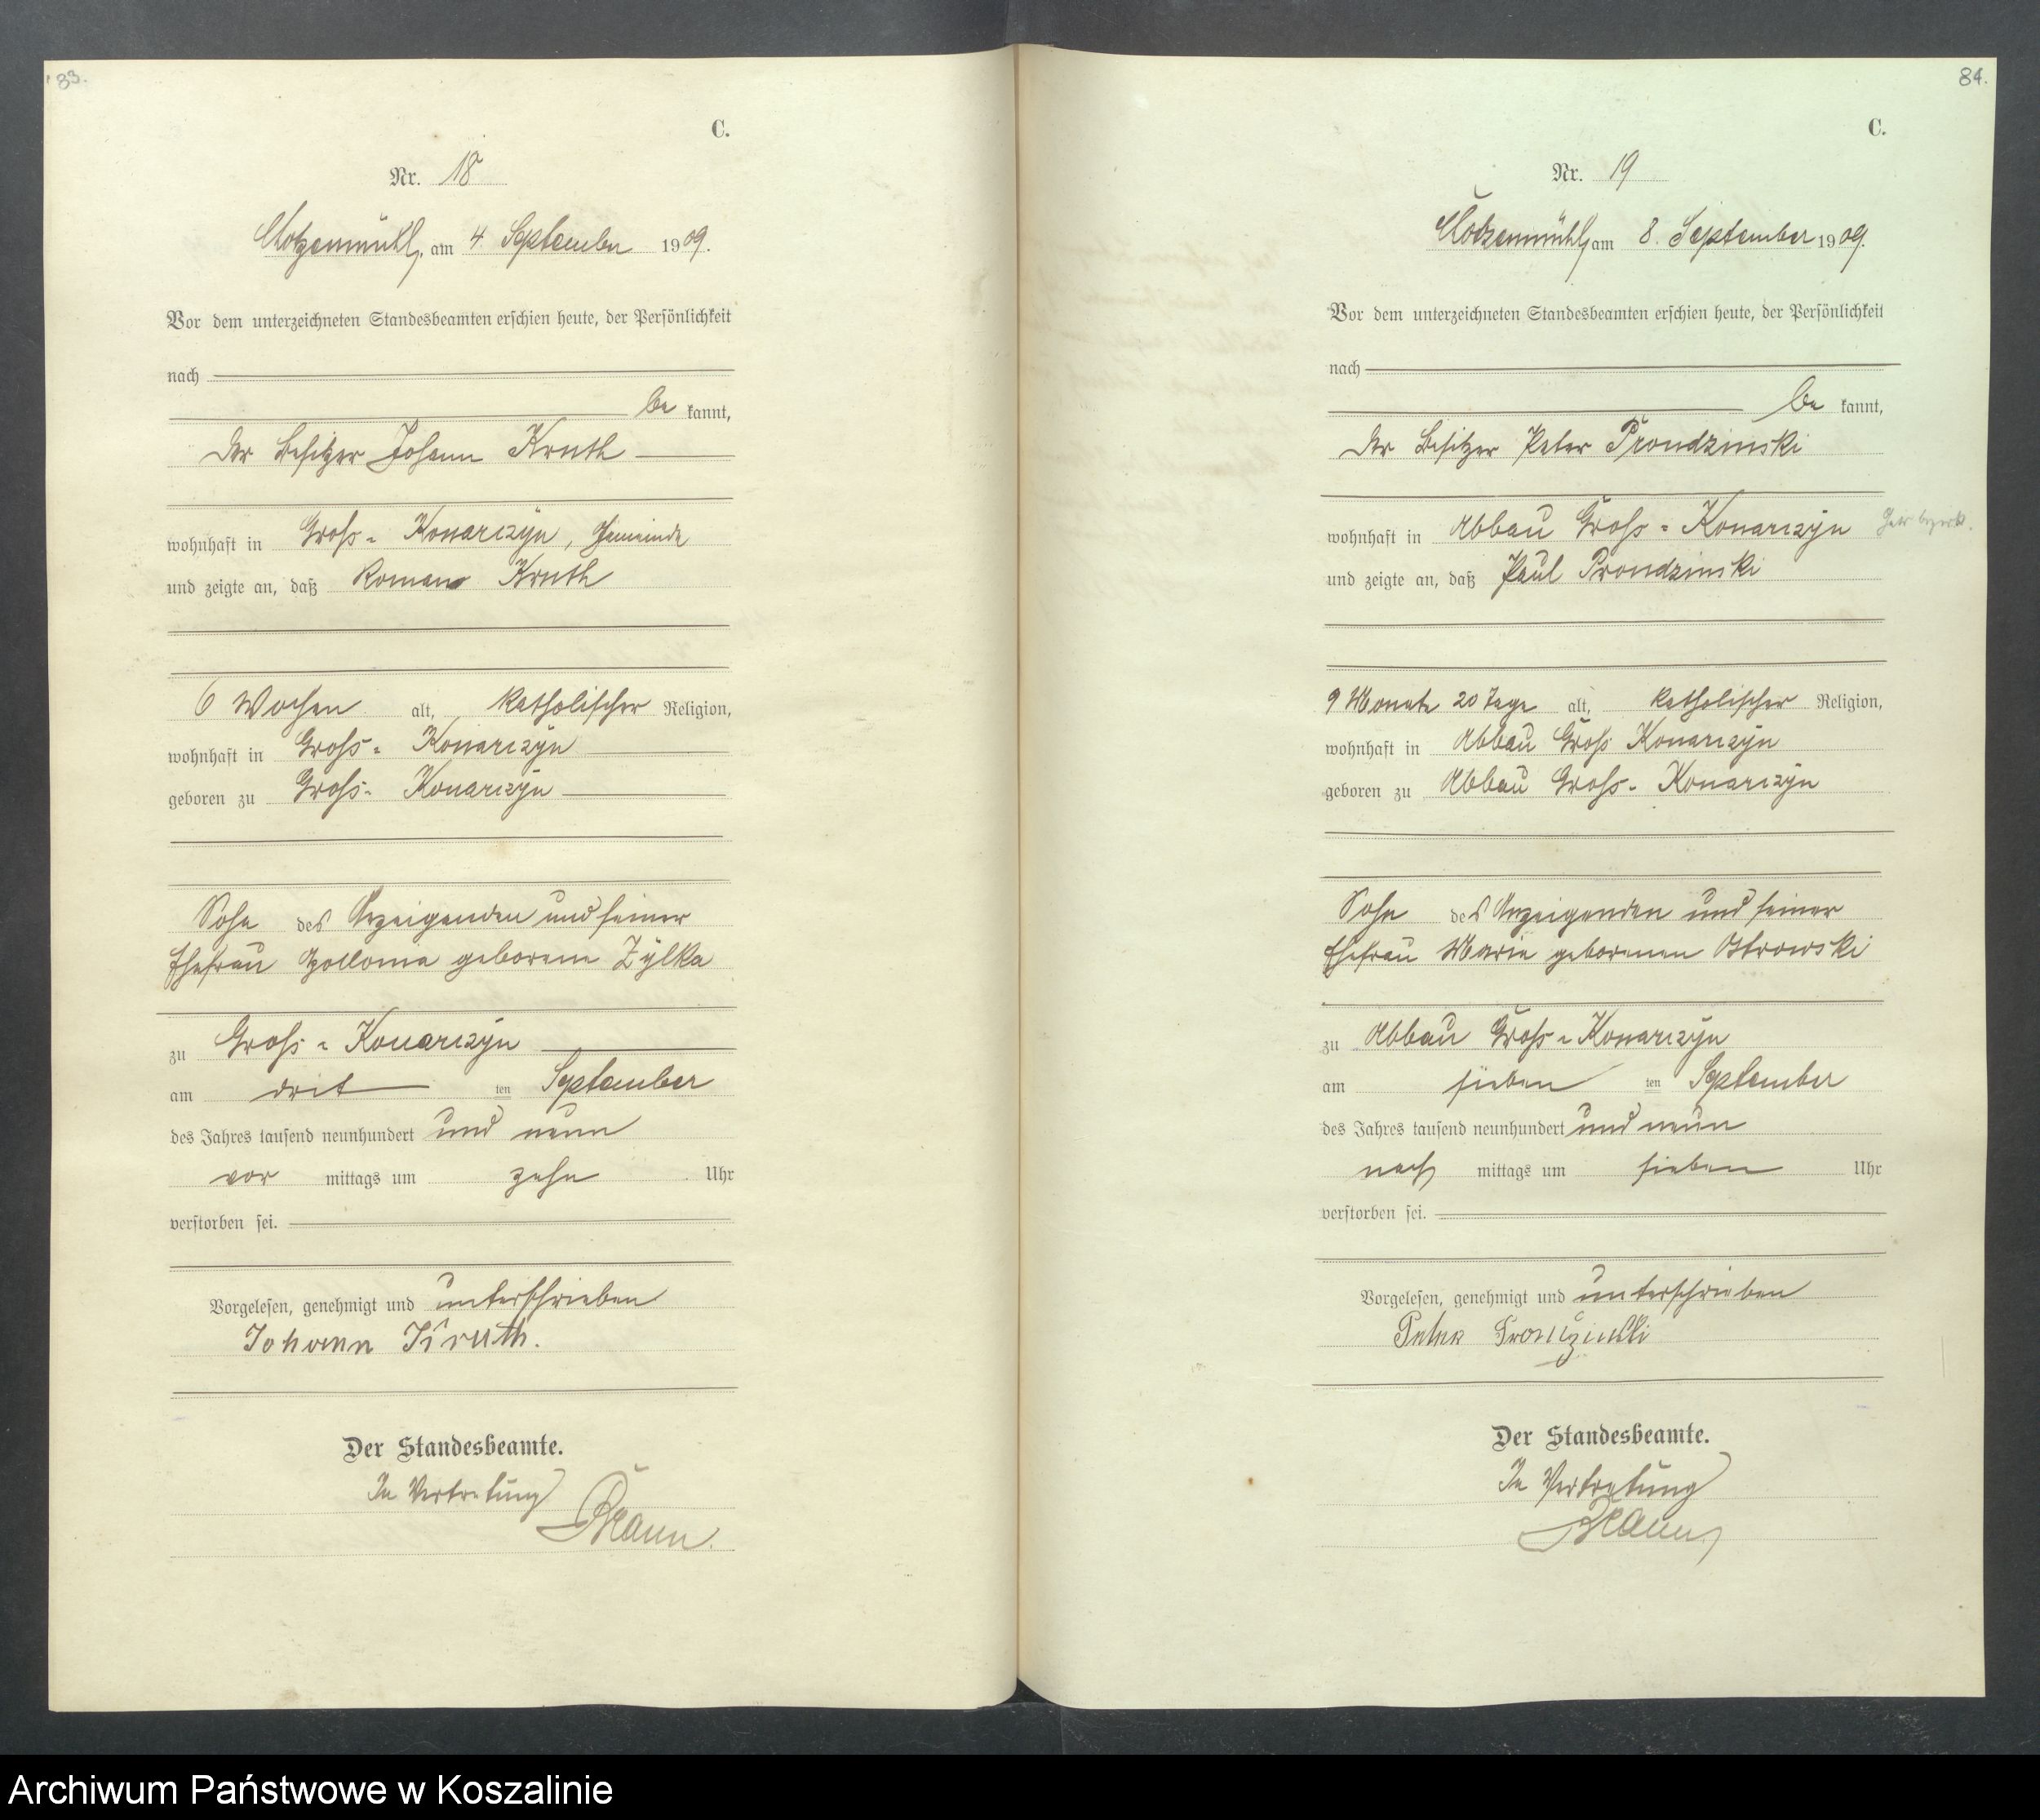 83.
C.
Nr. 18
Klotzenmühl, am 4. September 1909.
Vor dem unterzeichneten Standesbeamten erschien heute, der Persönlichkeit
nach
be kannt,
der Besitzer Johann Kruth
wohnhaft in Gross-Konarczyn, Gemeinde
und zeigte an, daß Roman Kruth
6 Wochen alt, katholischer Religion,
wohnhaft in Gross-Konarczyn
geboren zu Gross-Konarczyn
Sohn des Anzeigenden und seiner
Ehefrau geborene Zylka
zu Gross-Konarczyn
am drit ten September
des Jahres tausend neunhundert und neun
vor mittags um zehn Uhr
verstorben sei.
Vorgelesen, genehmigt und unterschrieben
Johann Kruth.
Der Standesbeamte.
In Vertretung
84.
C.
Nr. 19
Klotzenmühl, am 8. September 1909.
Vor dem unterzeichneten Standesbeamten erschien heute, der Persönlichkeit
nach
be kannt,
der Besitzer Peter Prondzinski
wohnhaft in Abbau Gross-Konarczyn
und zeigte an, daß Paul Prondzinski
9 Monate 20 Tage alt, katholischer Religion,
wohnhaft in Abbau Gross Konarczyn
geboren zu Abbau Gross-Konarczyn
Sohn des Anzeigenden und seiner
Ehefrau Marie geborenen Ostrowski
zu Abbau Gross-Konarczyn
am sieben ten September
des Jahres tausend neunhundert und neun
nach mittags um sieben Uhr
verstorben sei.
Vorgelesen, genehmigt und unterschrieben
Peter
Der Standesbeamte.
In Vertretung
Archiwum Państwowe w Koszalinie